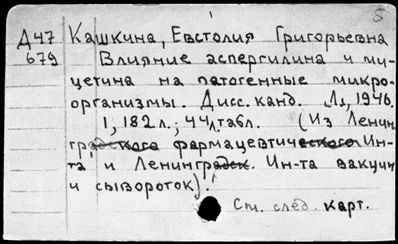 5
Д47 Кашкина, Евстолия Григорьевна
679 Влияние аспергилина и ми-
цетина на патогенные микро-
организмы. Дисс. канд. Л., 1946.
1, 182 л.; 44 л. табл. (Из Ленин
градского фармацевтического Ин-
та и Ленинградск. Ин-та вакцин
и сывороток).
См. след. карт.